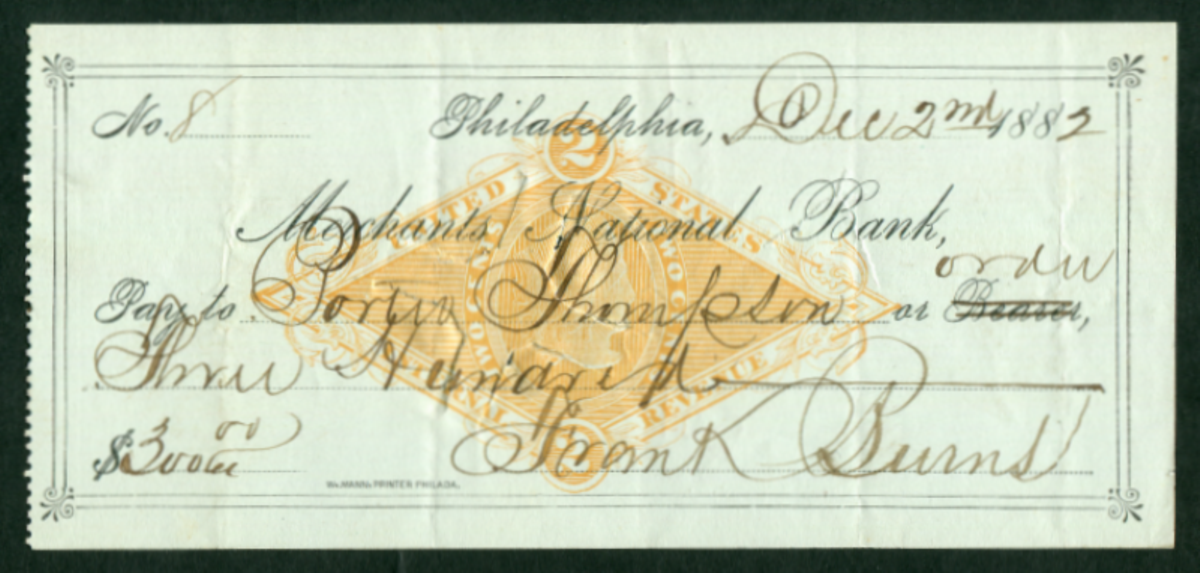 No. 8 Philadelphia, Dec 2nd 1882
2
UNITED STATES
Merchants' National Bank,
order
Pay to Porter Thompson or Bearer,
TWO CENTS TWO CENTS
Three Hundred
INTERNAL REVENUE
$300 00 Frank Burns
2
WM. MANN, PRINTER PHILADA.